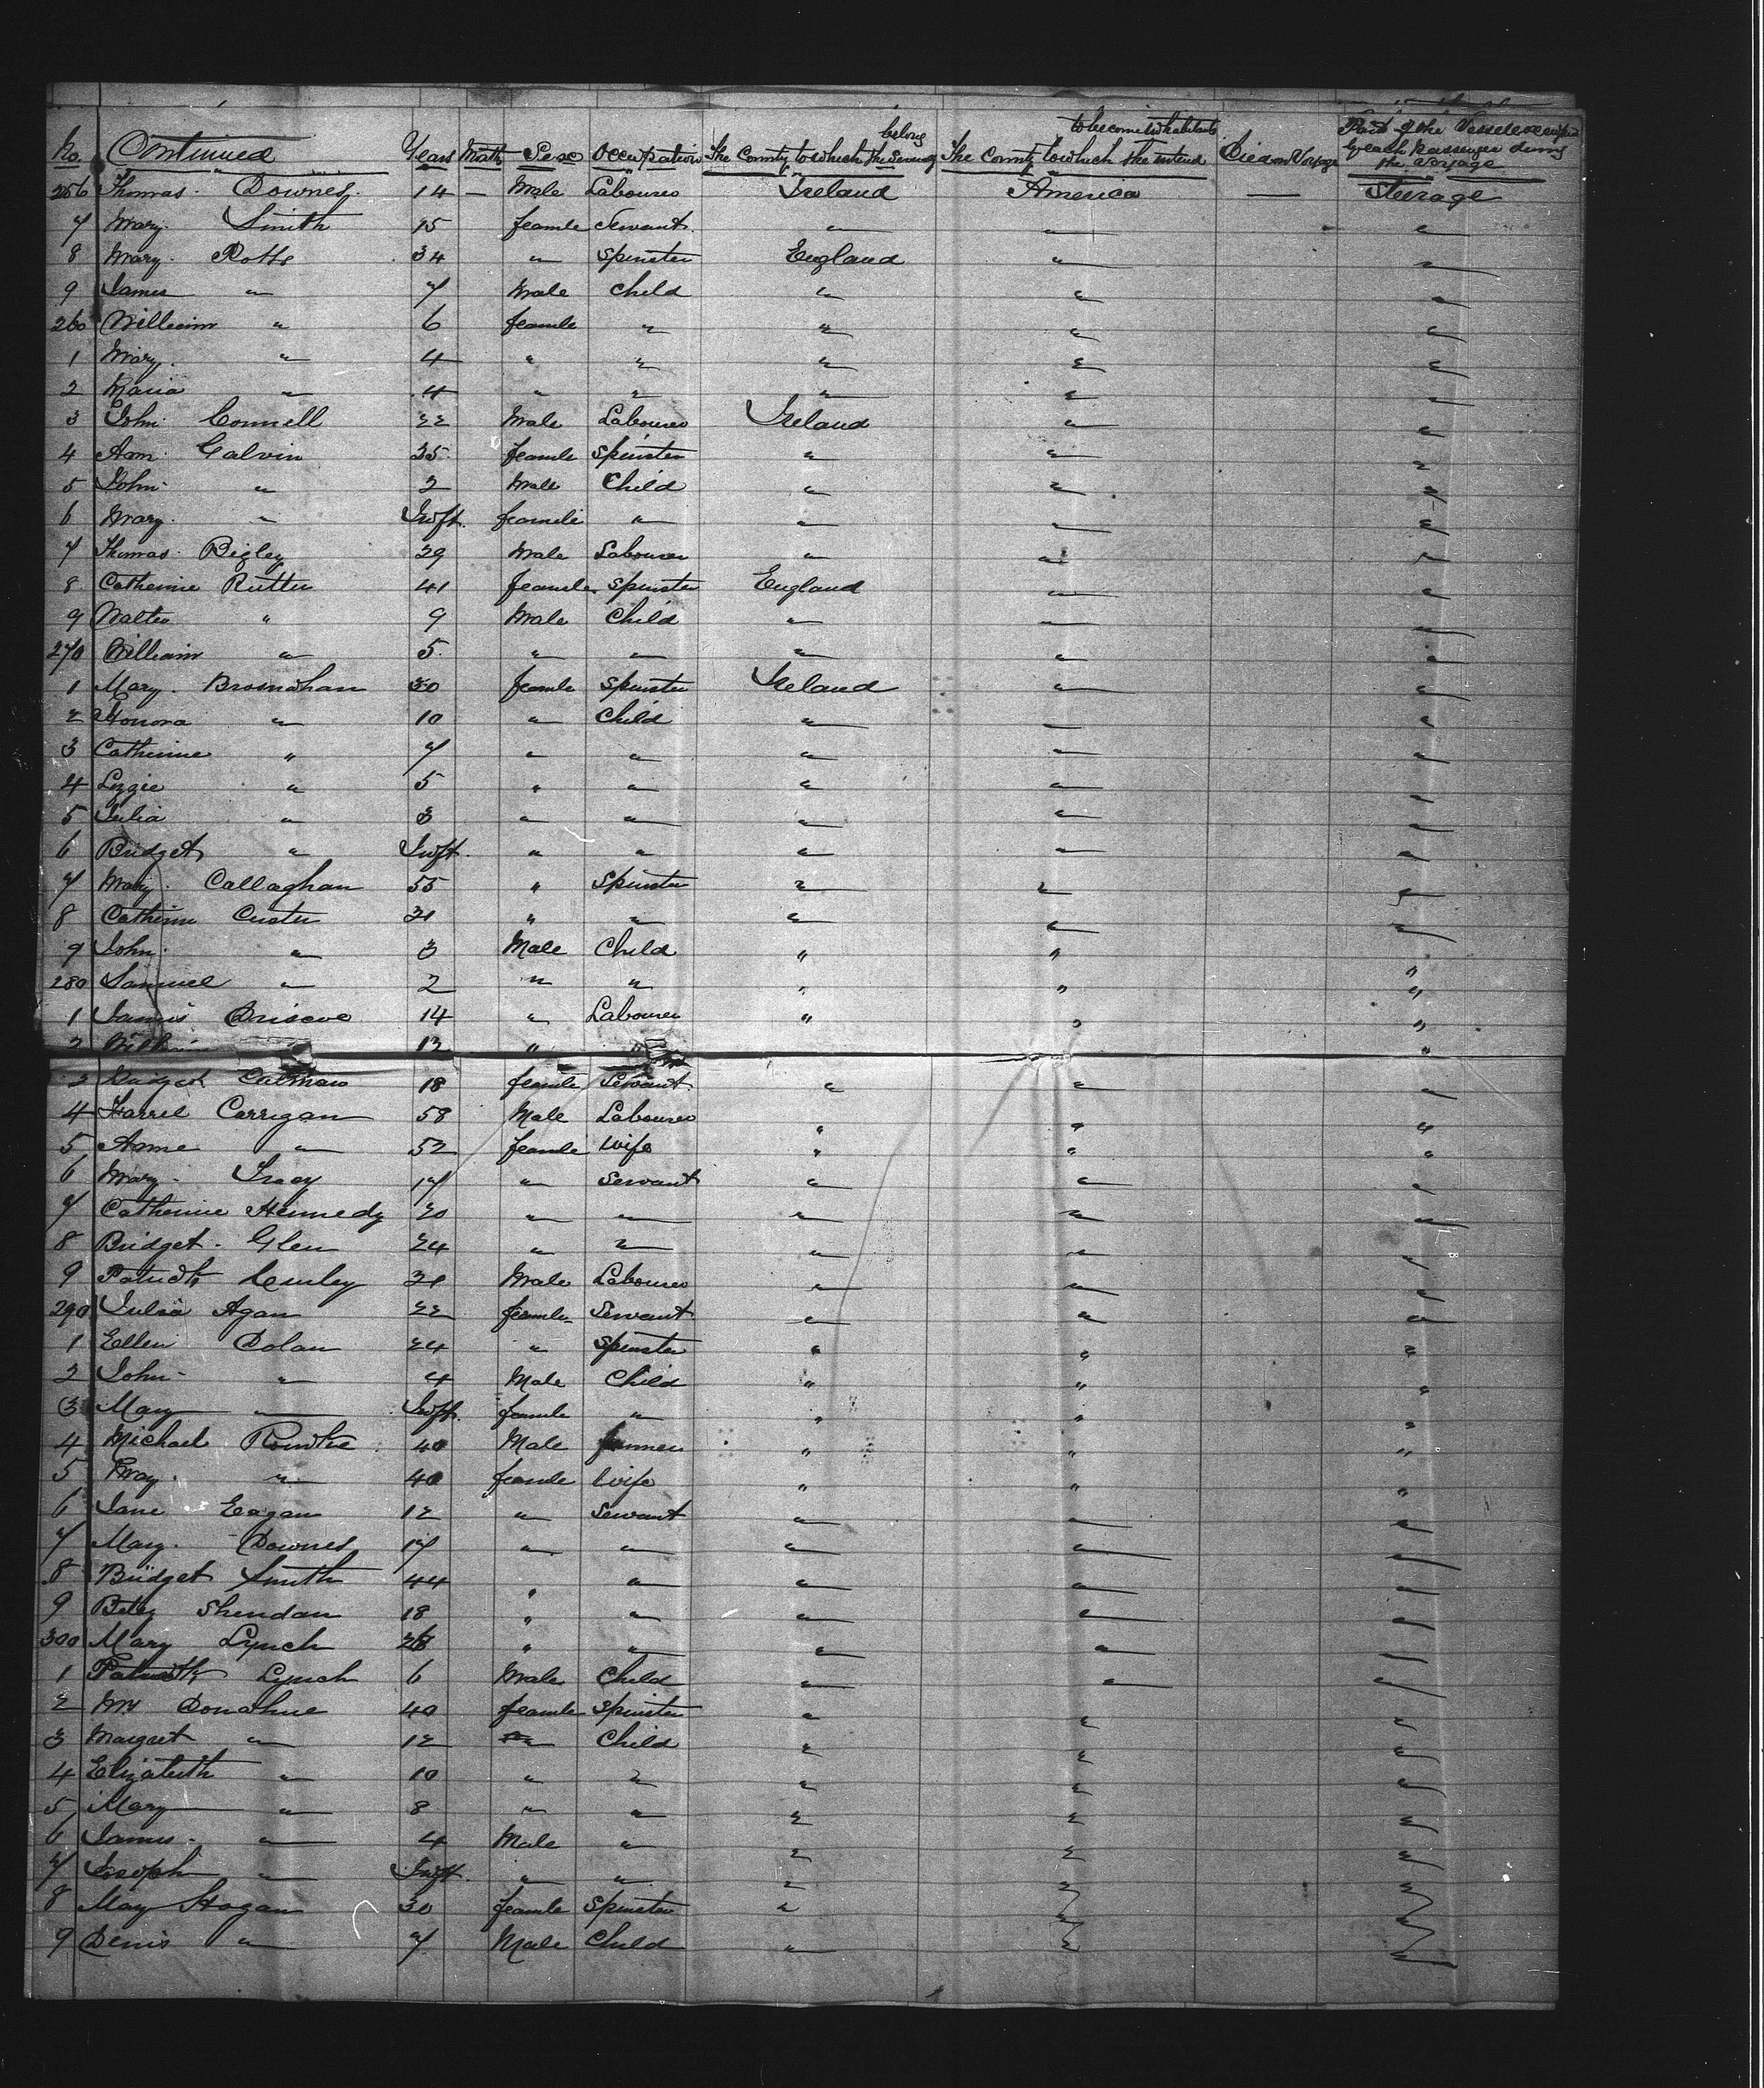 No. Continued Years Month Sex Occupation The County to which they severally belong The County to which the intend to become inhabitants Died on Voyage Part of the Vessel occupied by each Passenger during the Voyage
256 Thomas Downes 14 — Male Labourer Ireland America — Steerage
7 Mary Smith 15 feamle Servant " " "
8 Mary Potts 34 " Spinster England " "
9 James " 7 Male Child " " "
260 William " 6 feamle " " " "
1 Mary " 4 " " " " "
2 Maria " 4 " " " " "
3 John Connell 22 Male Labourer Ireland " "
4 Ann Galvin 35 feamle Spinster " " "
5 John " 2 Male Child " " "
6 Mary " Inft. feamle " " " "
7 Thomas Bigley 29 Male Labourer " " "
8 Catherine Rutter 41 feamle Spinster England " "
9 Walter " 9 Male Child " " "
270 William " 5 " " " " "
1 Mary Brosnahan 30 feamle Spinster Ireland " "
2 Honora " 10 " Child " " "
3 Catherine " 7 " " " " "
4 Lizzie " 5 " " " " "
5 Julia " 3 " " " " "
6 Bridget " Inft. " " " " "
7 Mary Callaghan 55 " Spinster " " "
8 Catherine 31 " " " " "
9 John " 3 Male Child " " "
280 Samuel " 2 " " " " "
1 James Briscoe 14 " Labourer " " "
2 William 12 " " "
3 Bridget 18 feamle Servant " " "
4 Farrel Corrigan 58 Male Labourer " " "
5 Anne " 52 feamle Wife " " "
6 Mary Tracy 17 " Servant " " "
7 Catherine Kennedy 20 " " " " "
8 Bridget Glen 24 " " " " "
9 Patrick 31 Male Labourer " " "
290 Julia Agan 22 feamle Servant " " "
1 Ellen Dolan 24 " Spinster " " "
2 John " 4 Male Child " " "
3 Mary " Inft. feamle " " " "
4 Michael 40 Male farmer " " "
5 Mary " 40 feamle Wife " " "
6 Jane Eagan 12 " Servant " " "
7 Mary Downes 17 " " " " "
8 Bridget Smith 44 " " " " "
9 Betsy Sheridan 18 " " " " "
300 Mary Lynch " " " " "
1 Patrick Lynch 6 Male Child " " "
2 Donohue 40 feamle Spinster " " "
3 Margret " 12 " Child " " "
4 Elizabeth " 10 " " " " "
5 Mary " 8 " " " " "
6 James " 4 Male " " " "
7 Joseph " Inft. " " " " "
8 Mary Hogan 30 feamle Spinster " " "
9 Denis " 7 Male Child " " "